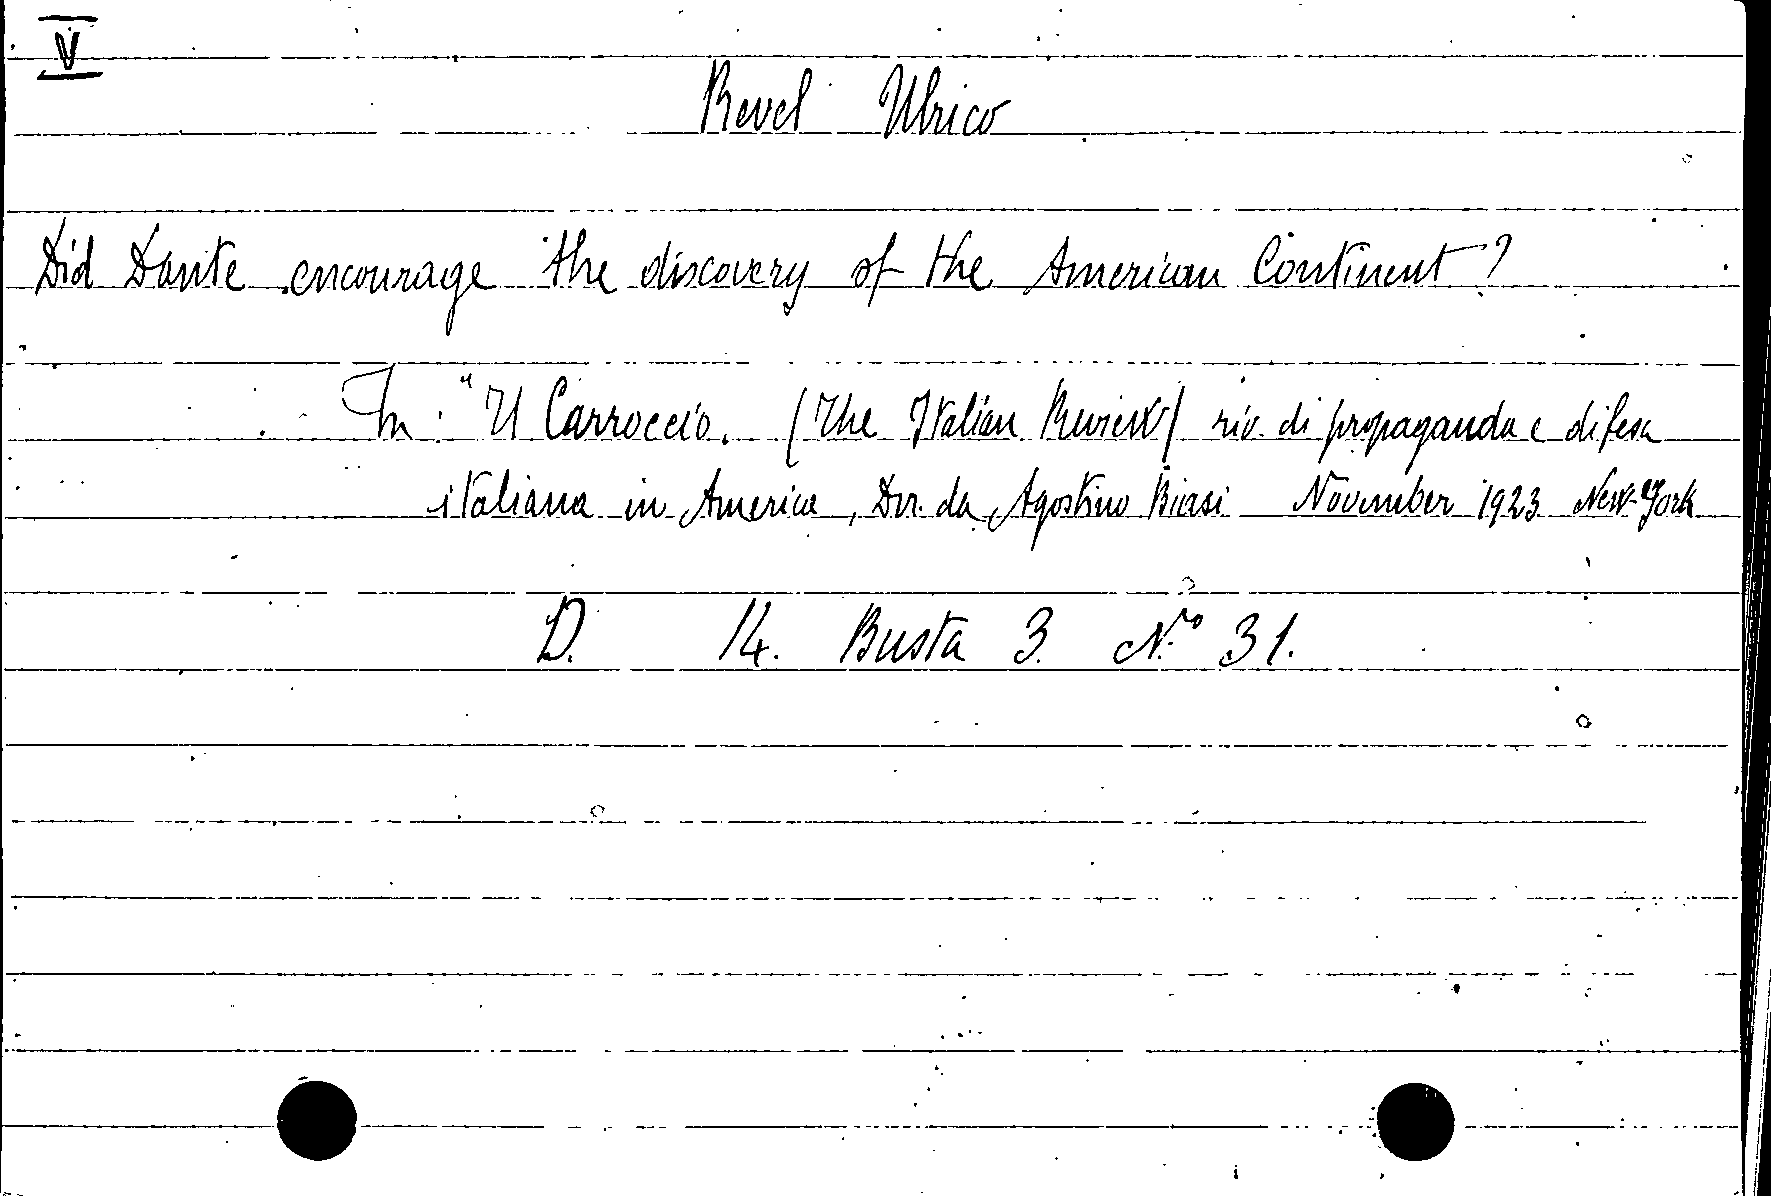 V
Revel Ulrico
Did Dante encourage the discovery of the American Continent?
In: "Il Carroccio. (The Italian Review) riv. di propaganda e difesa
italiana in America, Dir. da Agostino Biasi November 1923 New-York
D. 14. Busta 3. N.° 31.